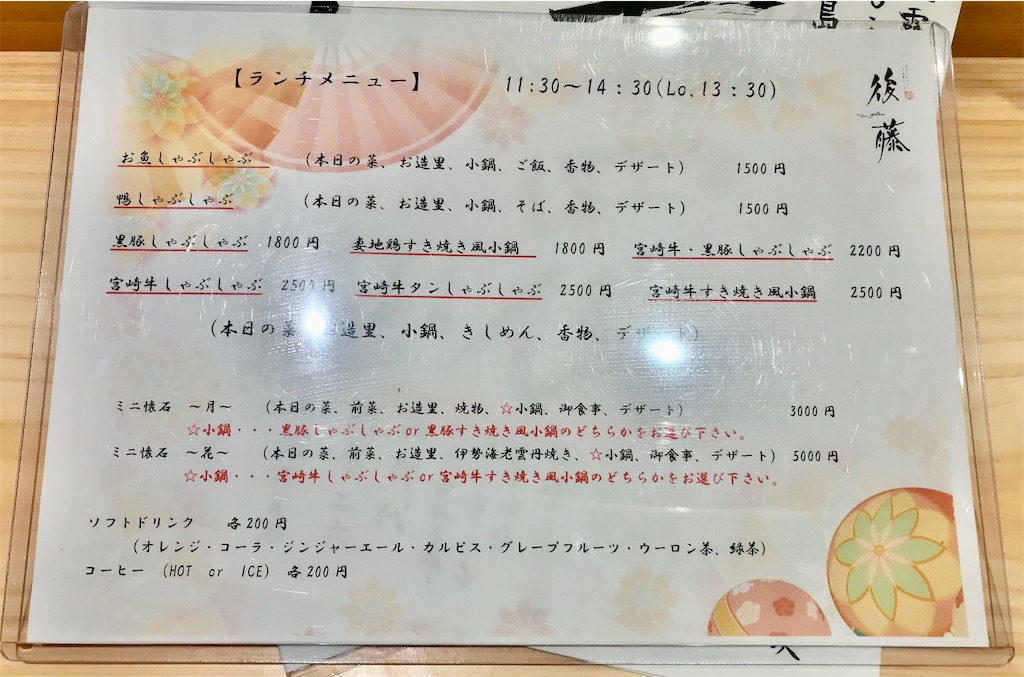 【ランチメニュー】 11:30〜14:30(Lo.13:30)
後藤
お魚しゃぶしゃぶ (本日の菜、お造里、小鍋、ご飯、香物、デザート) 1500円
鴨しゃぶしゃぶ (本日の菜、お造里、小鍋、そば、香物、デザート) 1500円
黒豚しゃぶしゃぶ 1800円 妻地鶏すき焼き風小鍋 1800円 宮崎牛・黒豚しゃぶしゃぶ 2200円
宮崎牛しゃぶしゃぶ 2500円 宮崎牛タンしゃぶしゃぶ 2500円 宮崎牛すき焼き風小鍋 2500円
(本日の菜、お造里、小鍋、きしめん、香物、デザート)
ミニ懐石 〜月〜 (本日の菜、前菜、お造里、焼物、☆小鍋、御食事、デザート) 3000円
☆小鍋・・・黒豚しゃぶしゃぶor黒豚すき焼き風小鍋のどちらかをお選び下さい。
ミニ懐石 〜花〜 (本日の菜、前菜、お造里、伊勢海老雲丹焼き、☆小鍋、御食事、デザート) 5000円
☆小鍋・・・宮崎牛しゃぶしゃぶor宮崎牛すき焼き風小鍋のどちらかをお選び下さい。
ソフトドリンク 各200円
(オレンジ・コーラ・ジンジャーエール・カルピス・グレープフルーツ・ウーロン茶、緑茶)
コーヒー (HOT or ICE) 各200円